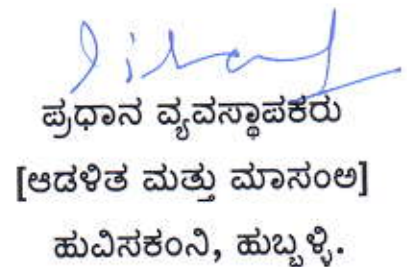 ಪ್ರಧಾನ ವ್ಯವಸ್ಥಾಪಕರು
[ಆಡಳಿತ ಮತ್ತು ಮಾಸಂಅ]
ಹುವಿಸಕಂನಿ, ಹುಬ್ಬಳ್ಳಿ.